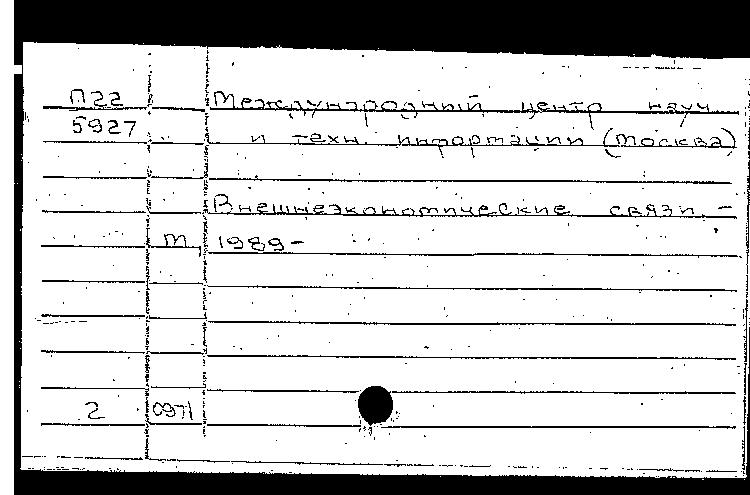 П22 Международный центр науч.
5927 и техн. информации (Москва)
Внешнеэкономические связи. –
М., 1989–
2 0971